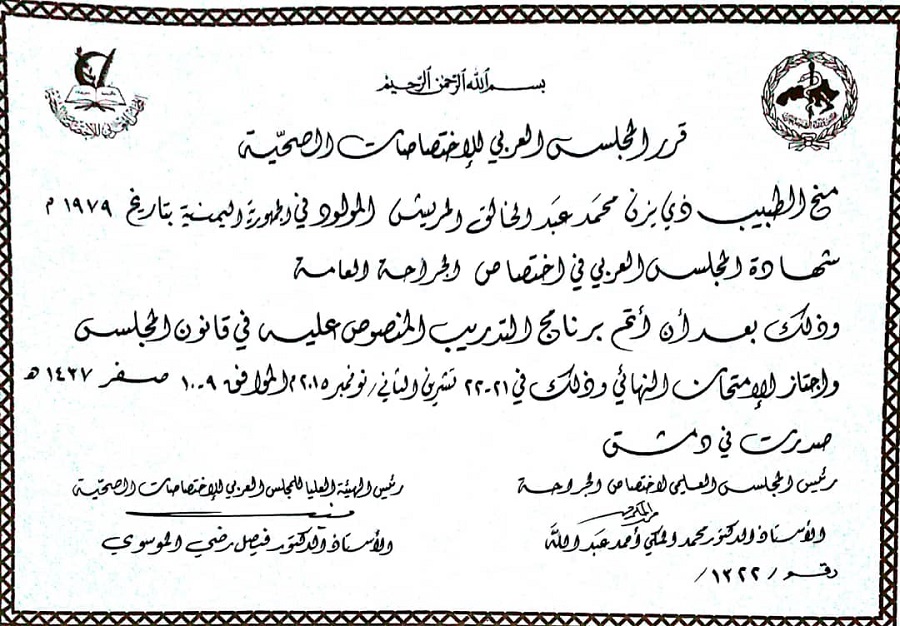 بسم الله الرحمن الرحيم
قرر المجلس العربي للإختصاصات الصحيّة
منح الطبيب ذي يزن محمد عبد الخالق المريش المولود في الجمهورية اليمنية بتاريخ ١٩٧٩ م
شهادة المجلس العربي في اختصاص الجراحة العامة
وذلك بعد أن أتم برنامج التدريب المنصوص عليه في قانون المجلس
واجتاز الإمتحان النهائي وذلك في ٢١-٢٢ تشرين الثاني/نوفمبر ٢٠١٥م الموافق ٩-١٠ صفر ١٤٣٧ هـ
صدرت في دمشق
رئيس المجلس العلمي لاختصاص الجراحة
الأستاذ الدكتور محمد المكي أحمد عبد الله
رقم / ١٣٢٢ /
رئيس الهيئة العليا للمجلس العربي للإختصاصات الصحيّة
الأستاذ الدكتور فيصل رضي الموسوي